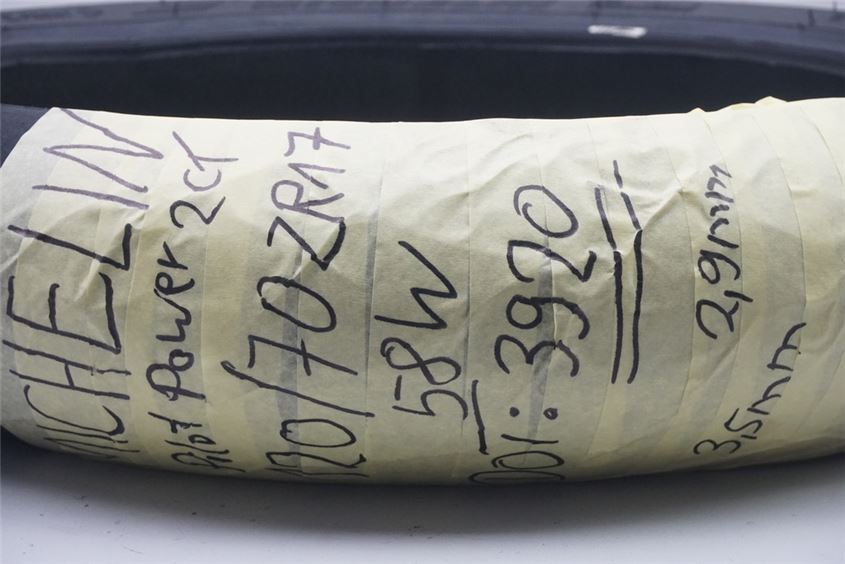 MICHELIN
Pilot Power 2CT
120/70ZR17
58W
DOT: 3920
2,9mm
3,5mm